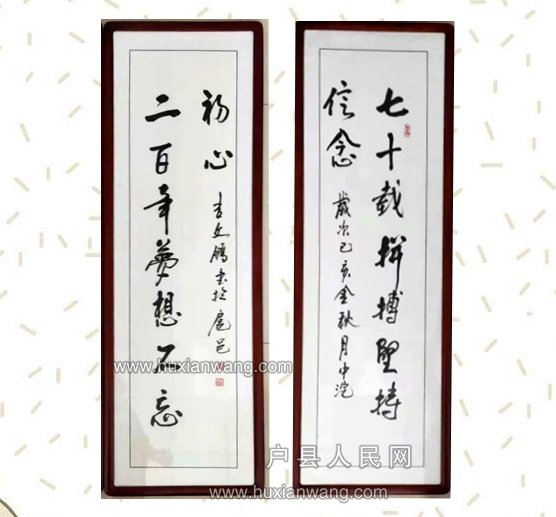 七十载拼搏坚持
信念
歲次己亥金秋月中浣
二百年夢想不忘
初心
李文鹏書於扈邑
www.huxianwang.com
www.huxianwang.com
户县人民网
www.huxianwang.com